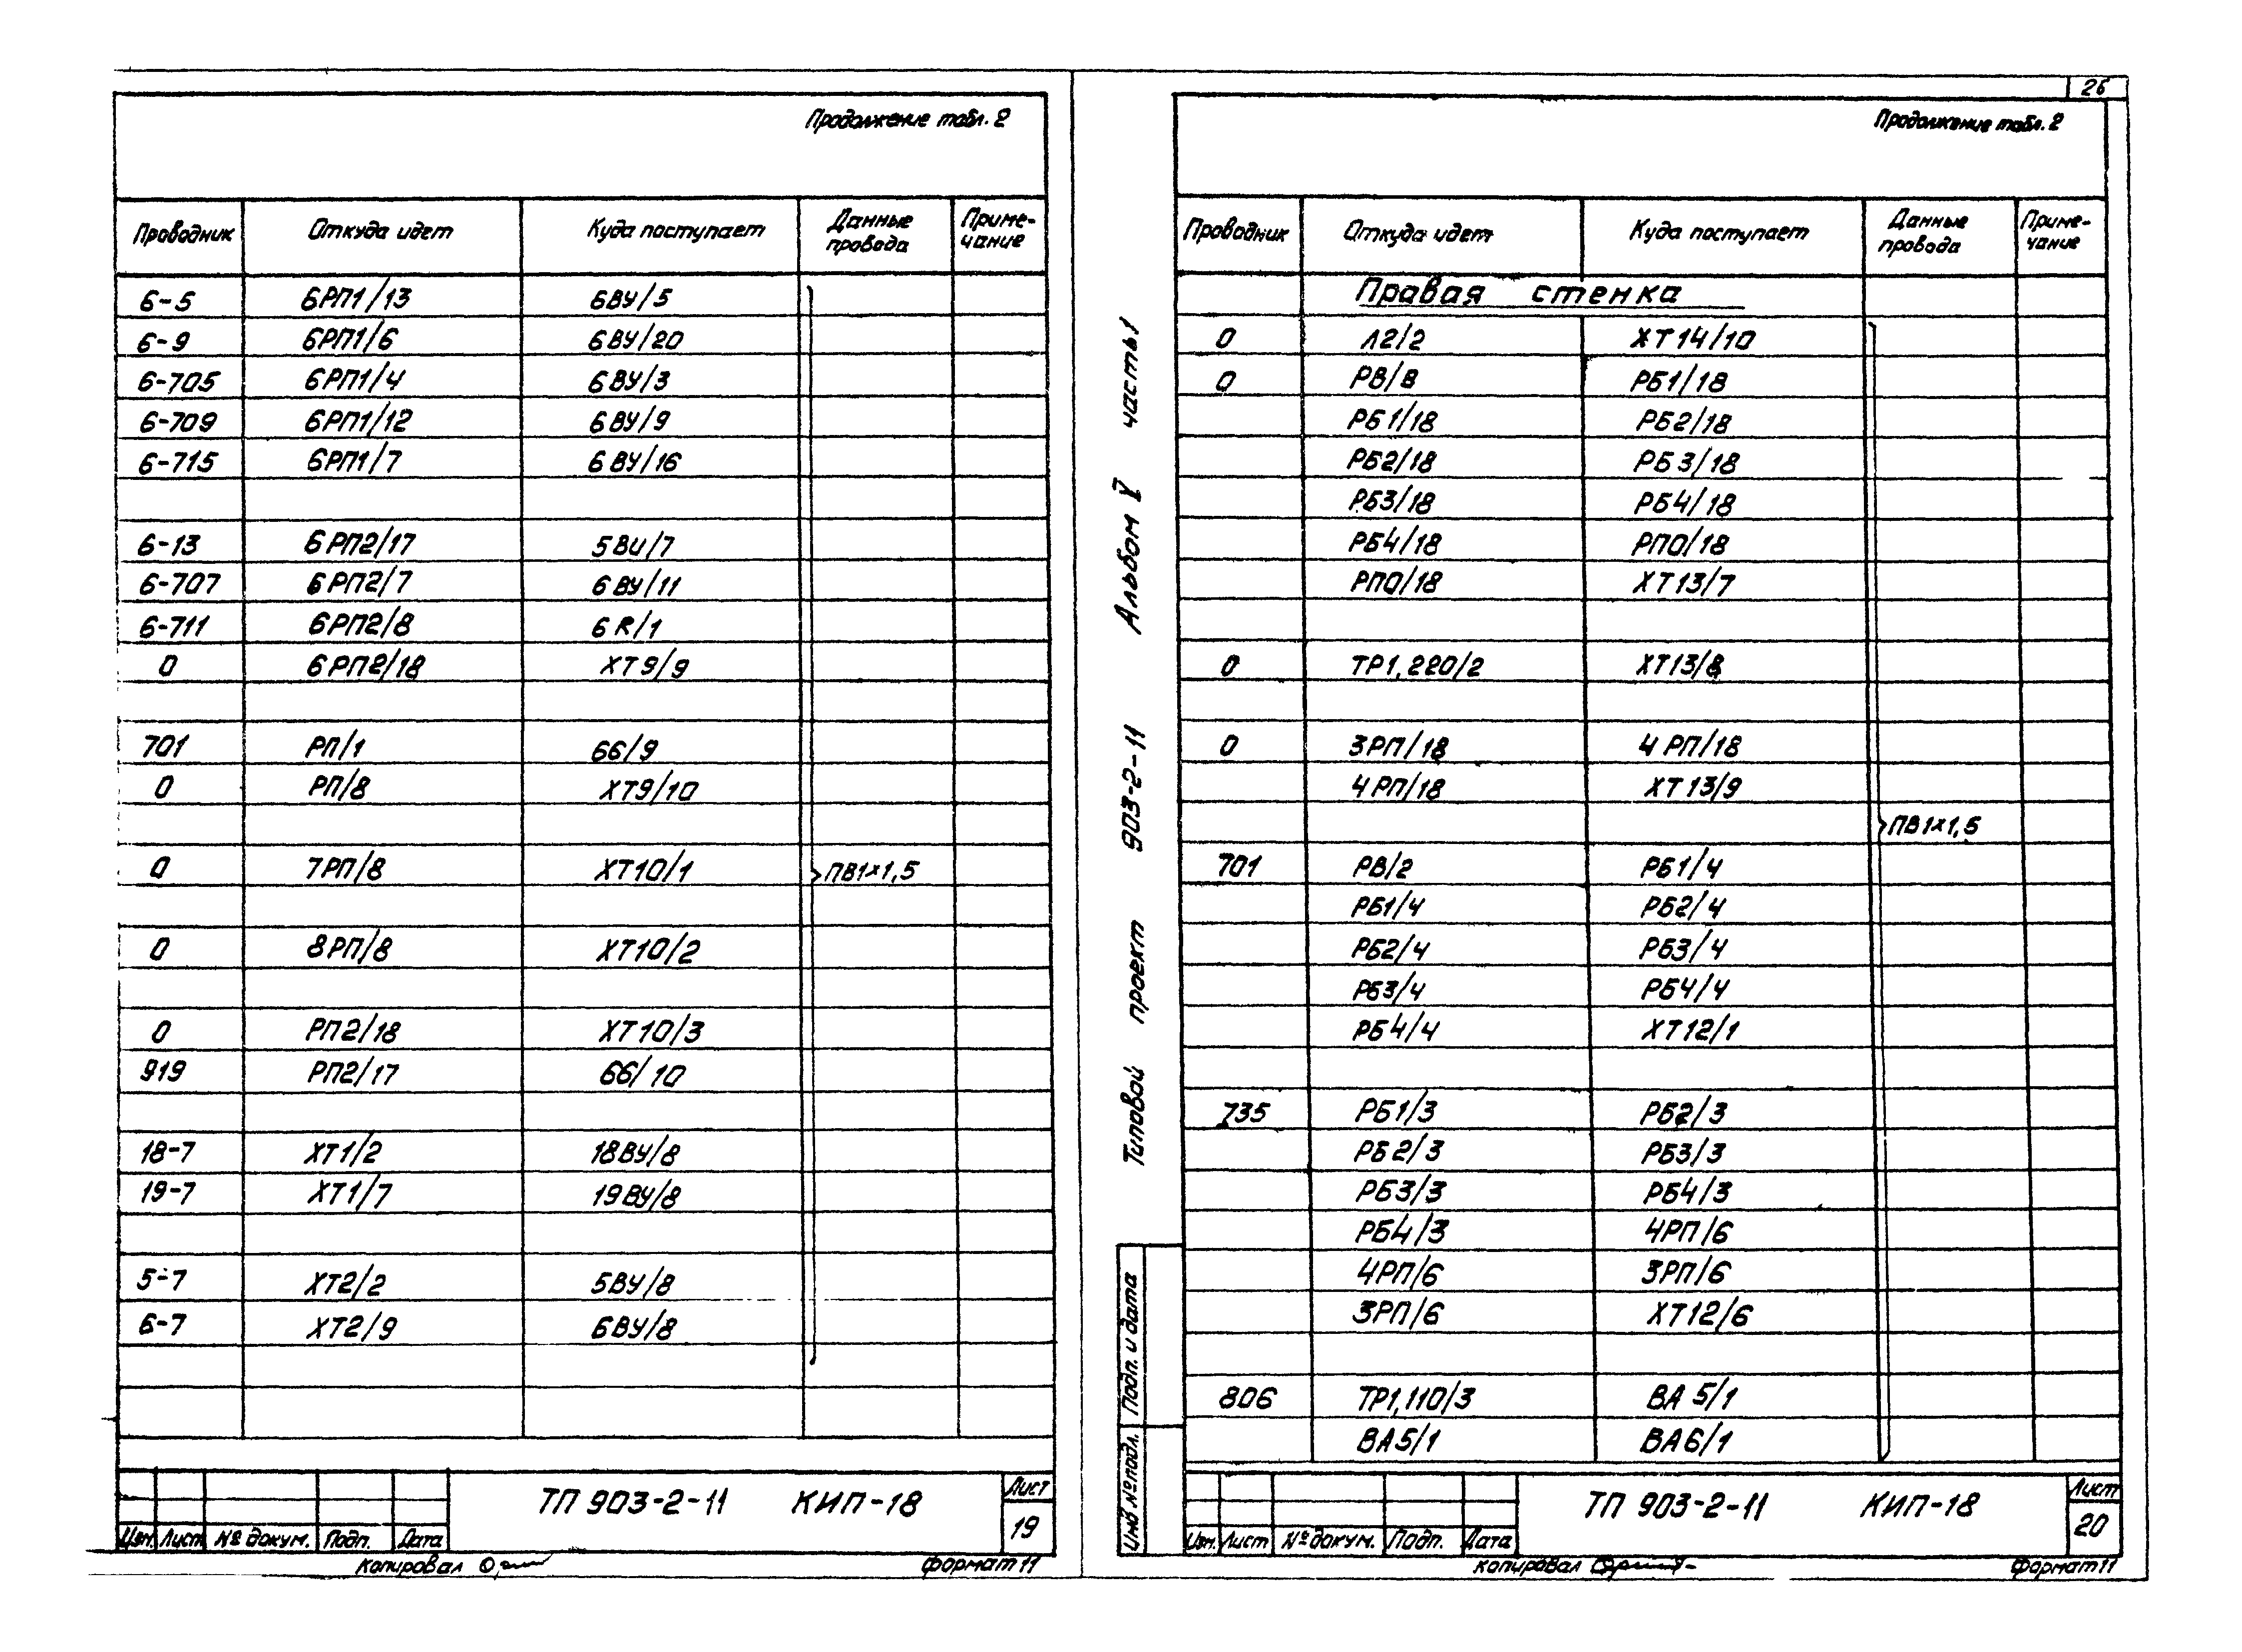 Продолжение табл. 2
Проводник Откуда идет Куда поступает Данные провода Приме-чание
6-5 6РП1/13 6ВУ/5
6-9 6РП1/6 6ВУ/20
6-705 6РП1/4 6ВУ/3
6-709 6РП1/12 6ВУ/9
6-715 6РП1/7 6ВУ/16
6-13 6РП2/17 5ВU/7
6-707 6РП2/7 6ВУ/11
6-711 6РП2/8 6R/1
0 6РП2/18 ХТ9/9
701 РП/1 66/9
0 РП/8 ХТ9/10
0 7РП/8 ХТ10/1 ПВ1×1,5
0 8РП/8 ХТ10/2
0 РП2/18 ХТ10/3
919 РП2/17 66/10
18-7 ХТ1/2 18ВУ/8
19-7 ХТ1/7 19ВУ/8
5-7 ХТ2/2 5ВУ/8
6-7 ХТ2/9 6ВУ/8
ТП 903-2-11 КИП-18
Лист
19
Изм. Лист № докум. Подп. Дата
Копировал
Формат 11
26
Типовой проект 903-2-11 Альбом V часть 1
Продолжение табл. 2
Проводник Откуда идет Куда поступает Данные провода Приме-чание
Правая стенка
0 Л2/2 ХТ14/10
0 РВ/8 РБ1/18
РБ1/18 РБ2/18
РБ2/18 РБ3/18
РБ3/18 РБ4/18
РБ4/18 РП0/18
РП0/18 ХТ13/7
0 ТР1,220/2 ХТ13/8
0 3РП/18 4РП/18
4РП/18 ХТ13/9
ПВ1×1,5
701 РВ/2 РБ1/4
РБ1/4 РБ2/4
РБ2/4 РБ3/4
РБ3/4 РБ4/4
РБ4/4 ХТ12/1
735 РБ1/3 РБ2/3
РБ2/3 РБ3/3
РБ3/3 РБ4/3
РБ4/3 4РП/6
4РП/6 3РП/6
3РП/6 ХТ12/6
806 ТР1,110/3 ВА5/1
ВА5/1 ВА6/1
Подп. и дата
Инв № подл.
ТП 903-2-11 КИП-18
Лист
20
Изм. Лист № докум. Подп. Дата
Копировал
Формат 11